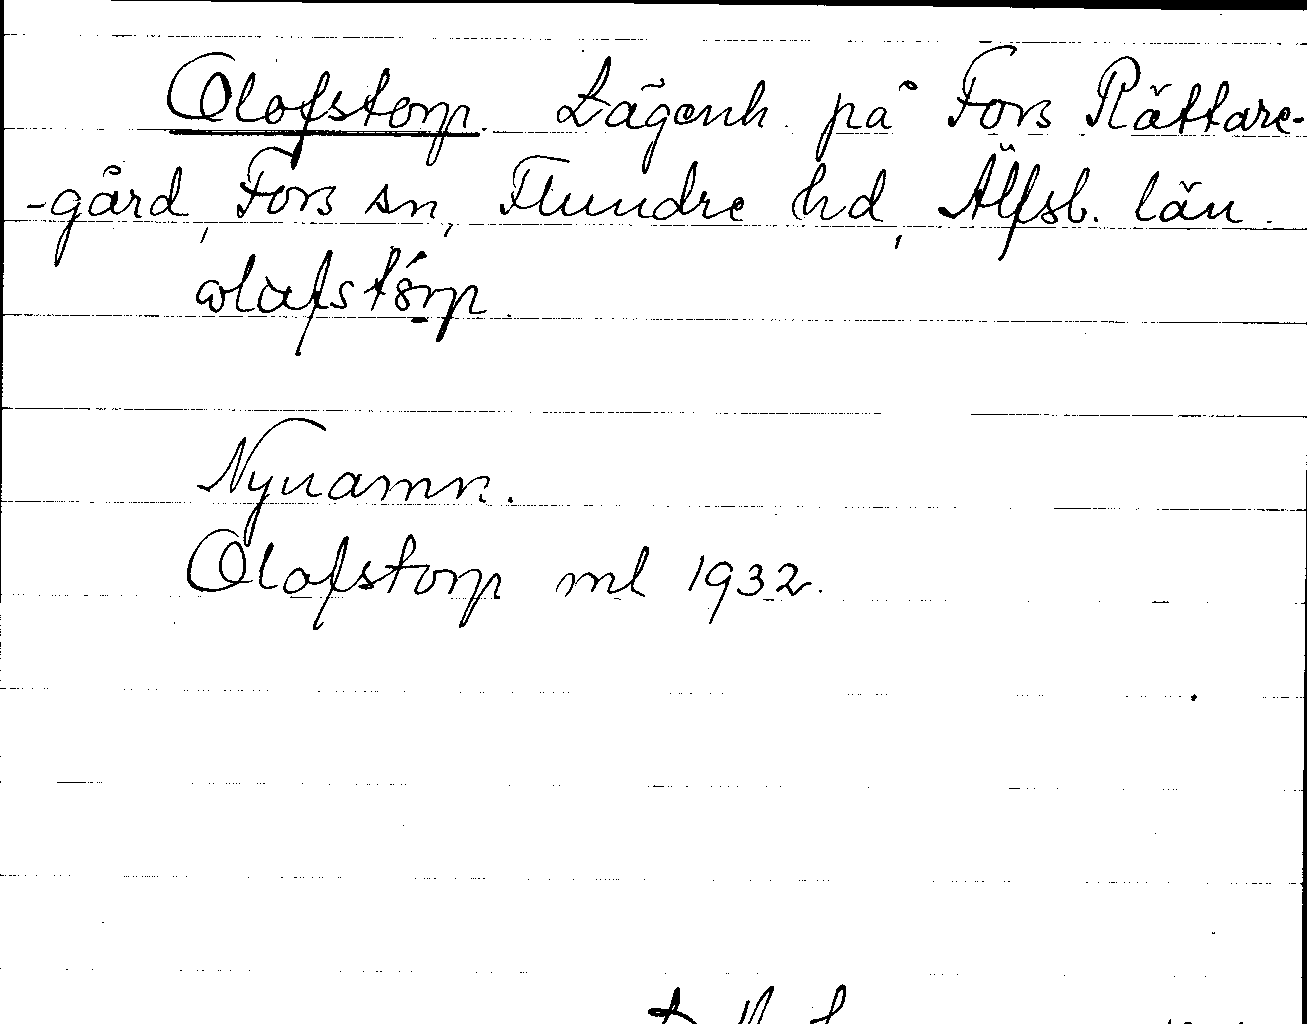 Olofstorp. Lägenh. på Fors Rättare-
-gård, Fors sn, Flundre hd, Älfsb. län.
ωlafstórp.
Nynamn.
Olofstorp ml 1932.